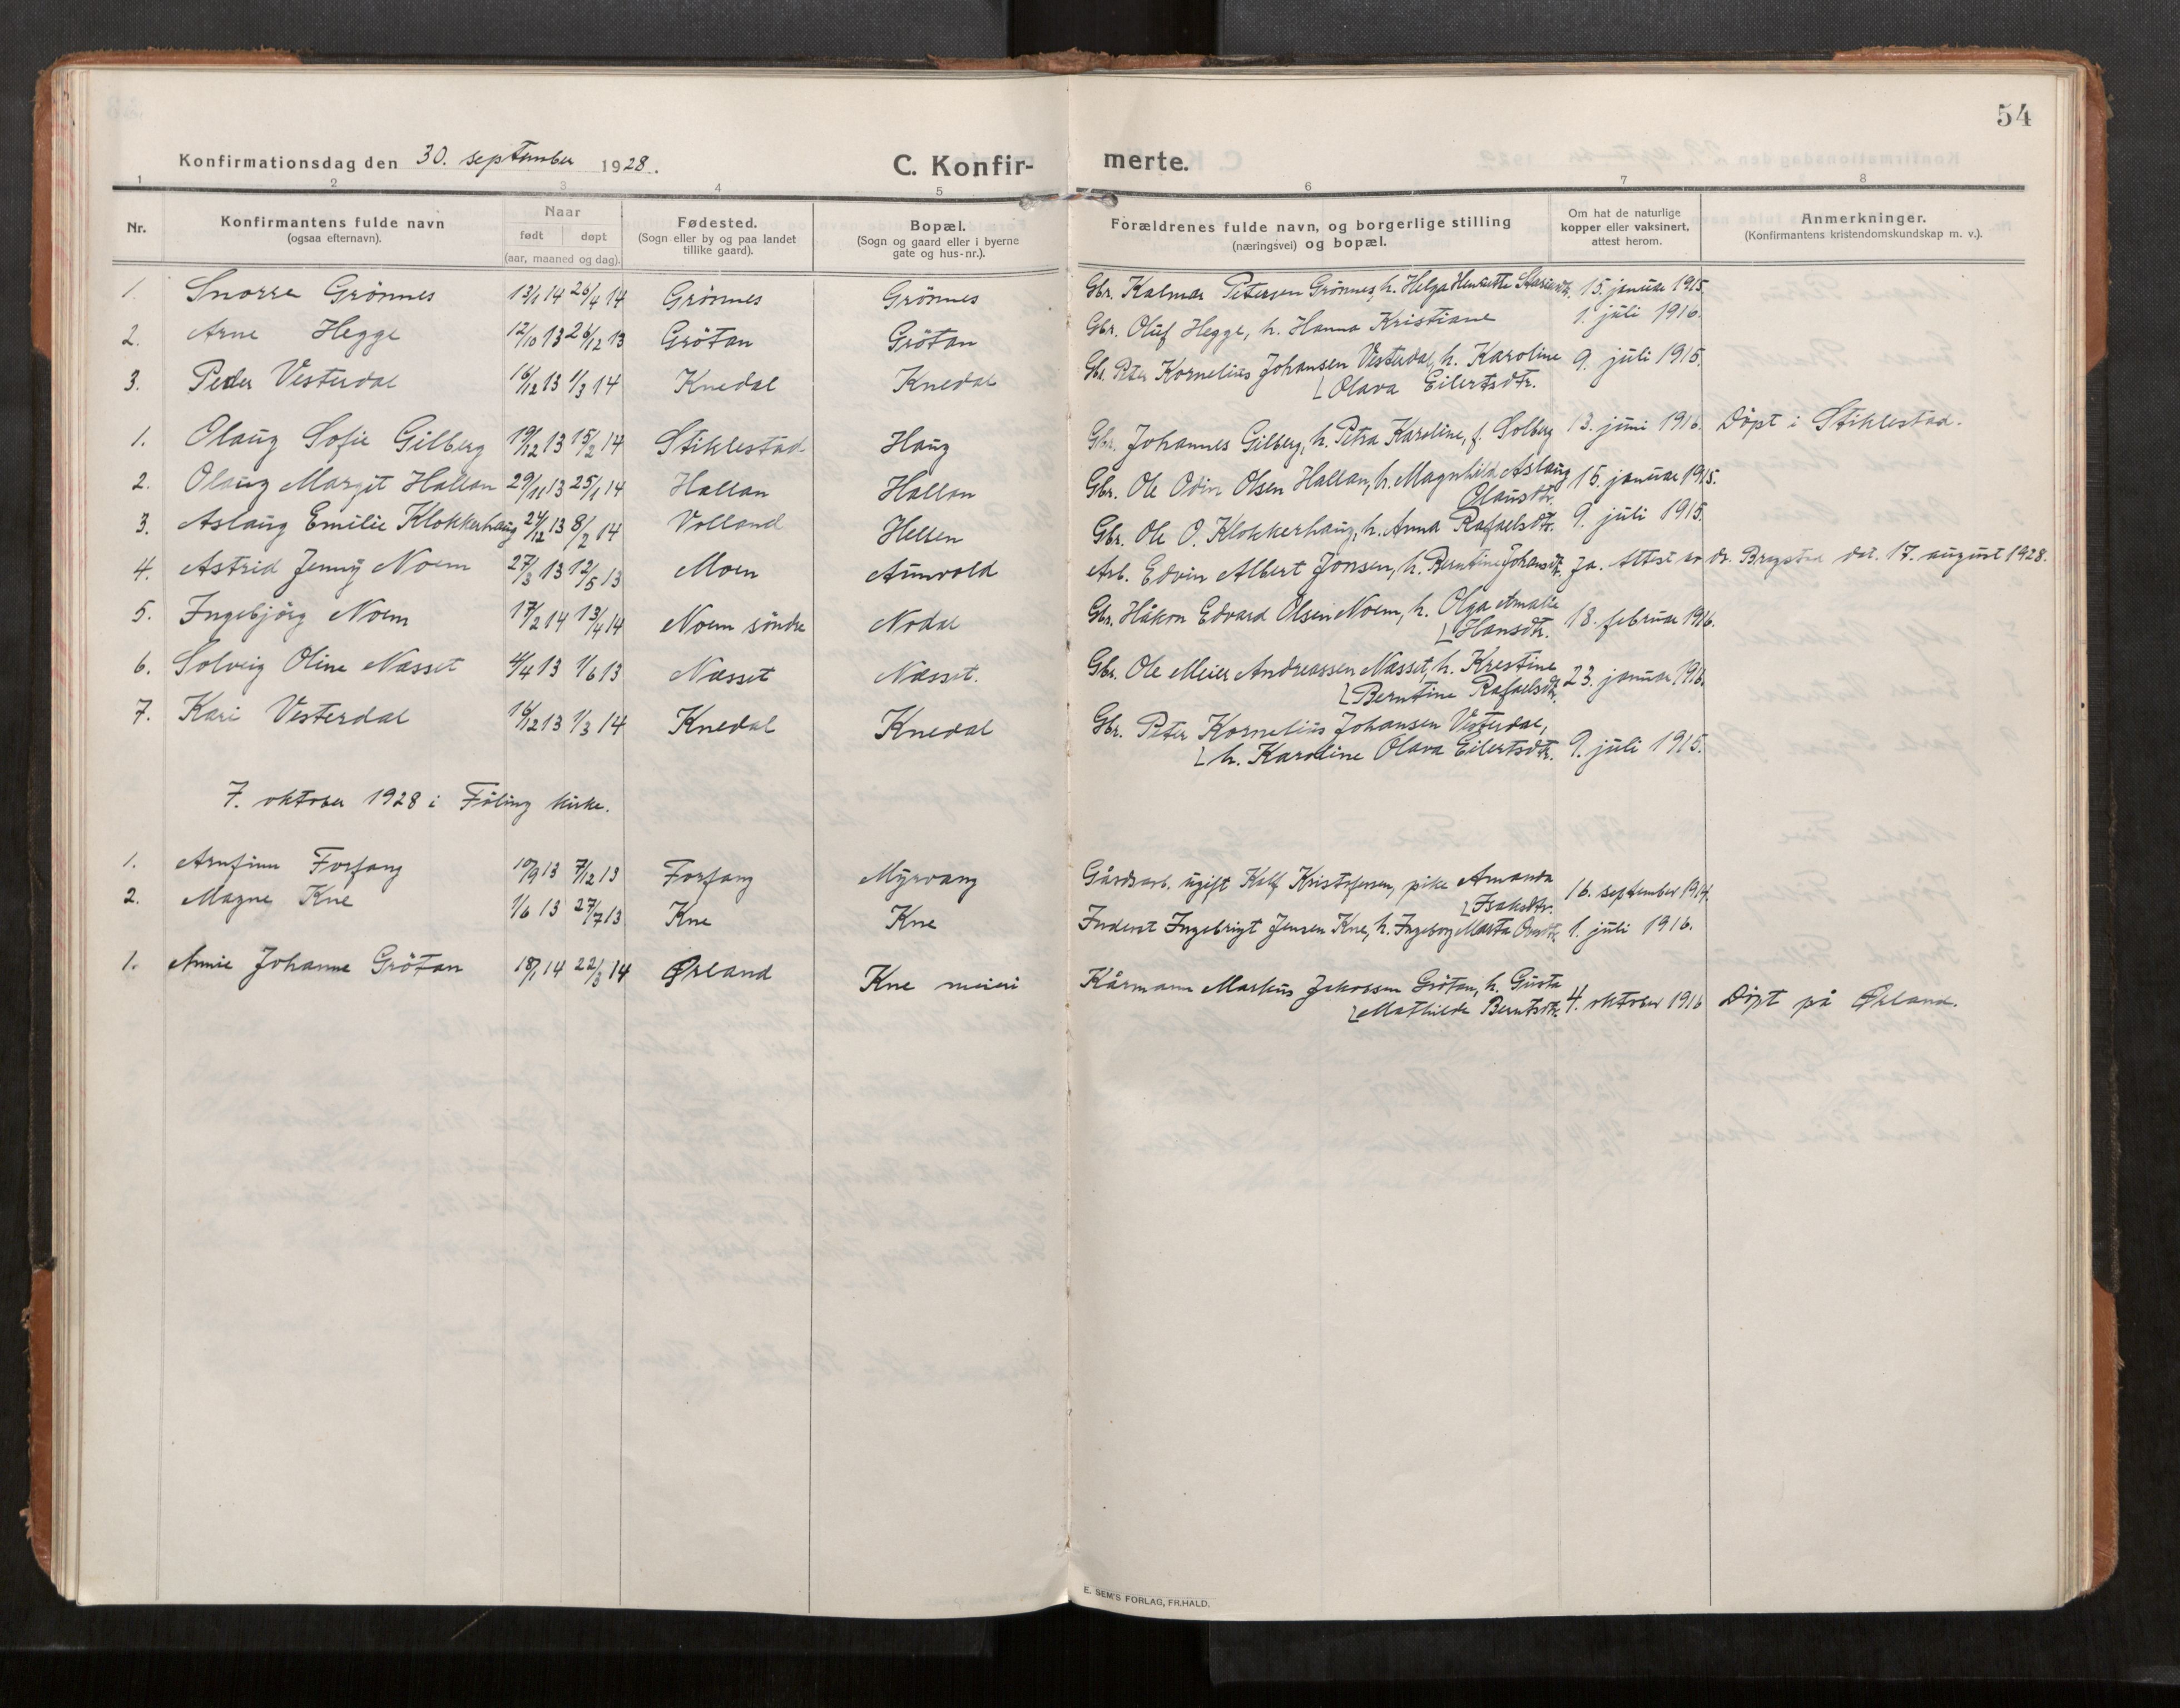 54
Konfirmationsdag den 30. september 1928.
C. Konfirmerte.
1 2 3 4 5 6 7 8
Nr. Konfirmantens fulde navn (ogsaa efternavn). Naar født døpt (aar, maaned og dag). Fødested. (Sogn eller by og paa landet tillike gaard). Bopæl. (Sogn og gaard eller i byerne gate og hus-nr.). Forældrenes fulde navn, og borgerlige stilling (næringsvei) og bopæl. Om hat de naturlige kopper eller vaksinert, attest herom. Anmerkninger. (Konfirmantens kristendomskundskap m. v.).
1. Snorre Grönnes 13/1 14 26/4 14 Grönnes Grönnes Gbr. Kalmar Petersen Grönnes, h. Helga Henriette 15. januar 1915.
2. Arne Hegge 12/10 13 26/12 13 Grötan Grötan Gbr. Oluf Hegge, h. Hanna Kristiane 1. juli 1916.
3. Peder Vesterdal 16/12 13 1/3 14 Knedal Knedal Gbr. Peter Kornelius Johansen Vesterdal, h. Karoline 9. juli 1915.
Olava Eilertsdtr.
1. Olaug Sofie Gilberg 19/12 13 15/2 14 Stiklestad Haug Gbr. Johannes Gilberg, h. Petra Karoline, f. Solberg 13. juni 1916. Döpt i Stiklestad.
2. Olaug Margit Hallan 29/11 13 25/1 14 Hallan Hallan Gbr. Ole Odin Olsen Hallan, h. Magnhild Aslaug 15. januar 1915.
Olausdtr.
3. Aslaug Emilie Klokkerhaug 24/12 13 8/2 14 Volland Hellen Gbr. Ole O. Klokkerhaug, h. Anna Rafaelsdtr. 9. juli 1915.
4. Astrid Jenny Noem 27/3 13 12/5 13 Moen Aunvold Arb. Edvin Albert Jonsen, h. Berntine Johansdtr. Ja. Attest av dr. Bregstad dat. 17. august 1928.
5. Ingebjörg Noem 17/2 14 13/4 14 Noem söndre Nodal Gbr. Håkon Edvard Olsen Noem, h. Olga Amalie
Hansdtr. 18. februar 1916.
6. Solveig Oline Næsset 4/4 13 1/6 13 Næsset Næsset. Gbr. Ole Meier Andreassen Næsset, h. Krestine
Berntine Rafaelsdtr. 23. januar 1916.
7. Kari Vesterdal 16/12 13 1/3 14 Knedal Knedal Gbr. Peter Kornelius Johansen Vesterdal,
h. Karoline Olava Eilertsdtr. 9. juli 1915.
7. oktober 1928 i Föling kirke.
1. Arnfinn Forfang 10/9 13 7/12 13 Forfang Myrvang Gårdsarb. ugift Kalf Kristofersen, pike Amanda
Isaksdtr. 16. september 1914.
2. Magne Kne 1/6 13 27/7 13 Kne Kne Inderst Ingebrigt Jensen Kne, h. Ingeborg Marta 1. juli 1916.
1. Annie Johanne Grötan 18/1 14 22/3 14 Ørland Kne meieri Kårmann Markus Jakobsen Grötan, h. Gusta
Mathilde Berntsdtr. 4. oktober 1916 Döpt på Ørland.
E. SEM'S FORLAG, FR.HALD.